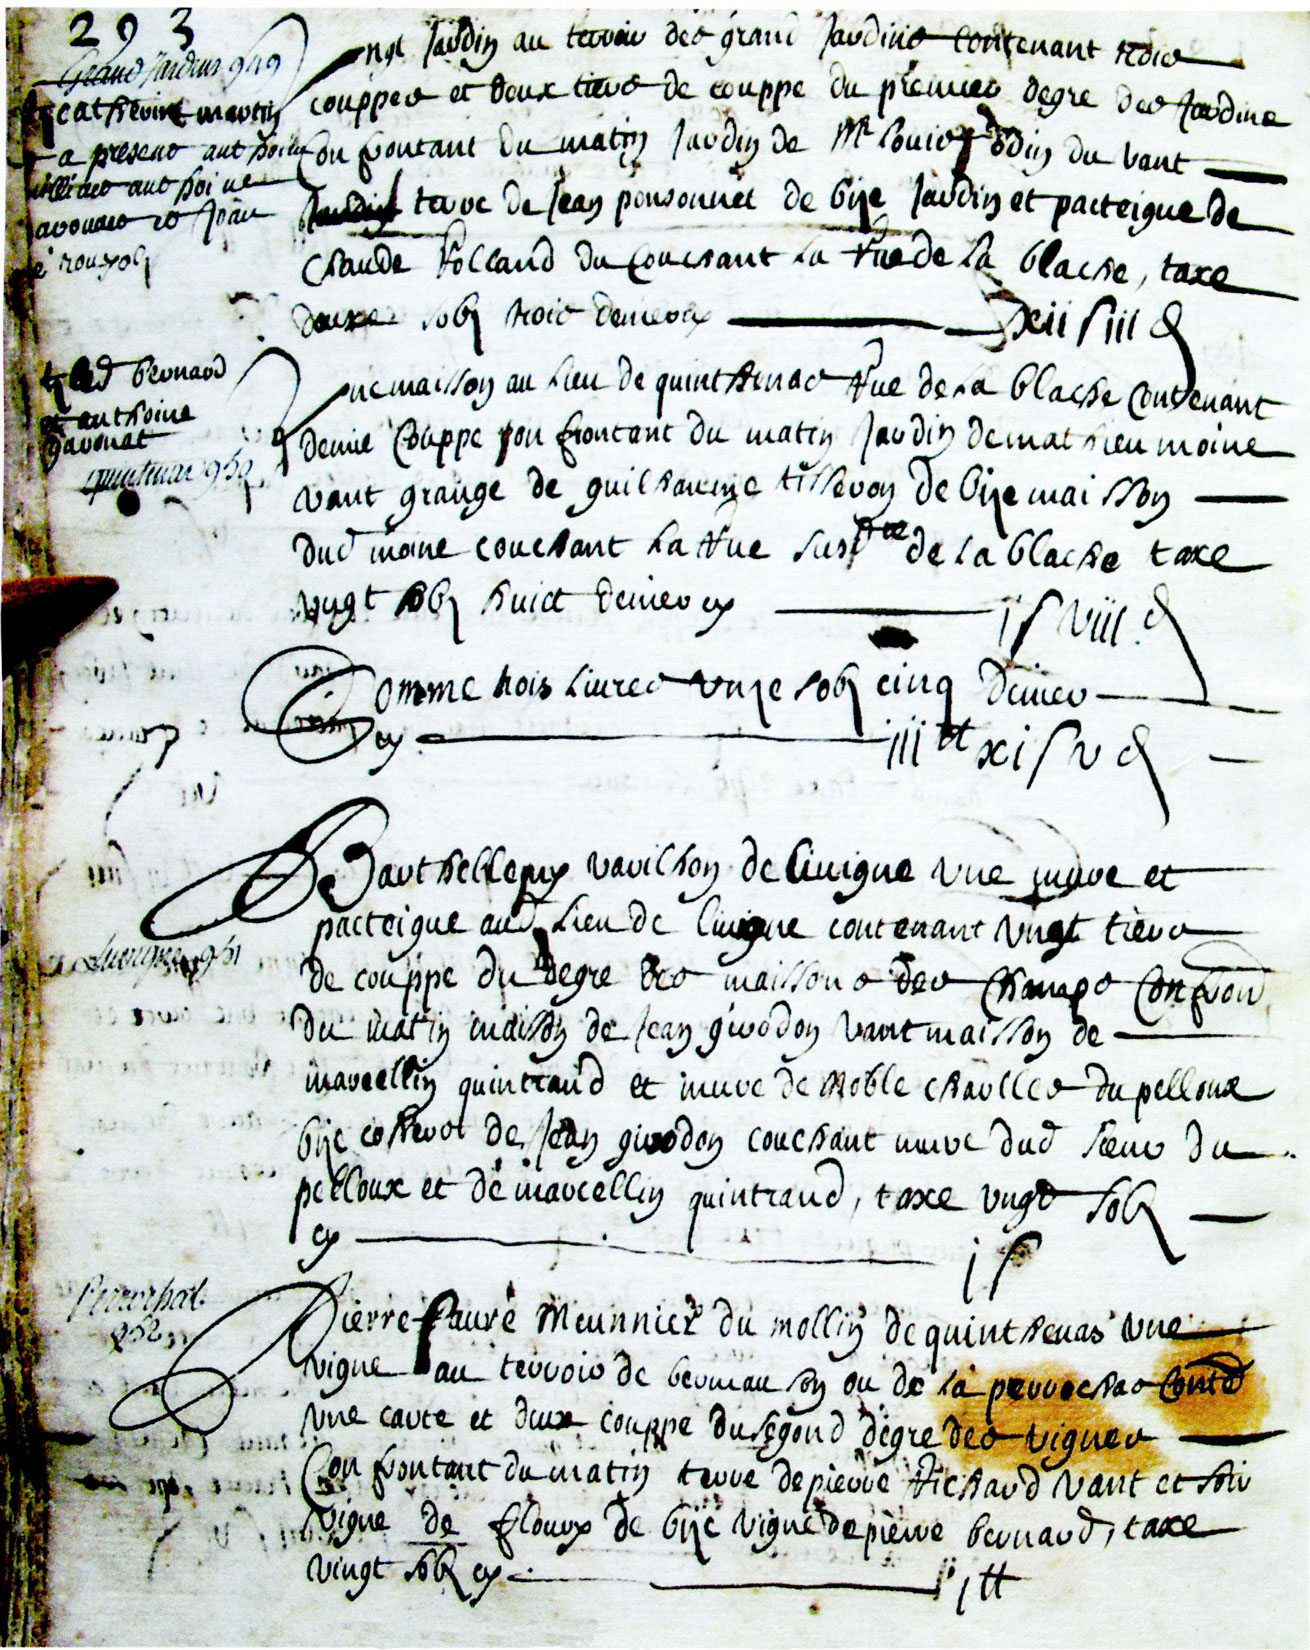 293
Grand Jardin 949
catherine martin
a present anthoine
anthoine
et Jean
rouzon
ung Jardin au terroir des grand Jardins contenant trois
couppes et deux tiers de couppe du premier degre des Jardins
confrontant du matin Jardin de Mr Louis odin du vant
Jardin terre de Jean ponsonnet de bize Jardin et pacteigue de
Claude Rolland du couchant la Rue de la blache, taxe
douze solz trois deniers cy xii s iii d
led bernard
et anthoine
gavonat
quintenas 950
Une maison au lieu de quinthenas Rue de la blache contenant
demie Couppe confrontant du matin Jardin de mathieu moine
vant grange de guilhaume tisseron de bize maison
dud moine couchant la Rue susdte de la blache taxe
vingt solz huict deniers cy 1 s viii d
Somme trois livres unze solz cinq denier
cy iii tt xi s v d
951
Barthellemy varilhon de livigne une mure et
pacteigue aud lieu de livigne contenant vingt tiers
de couppe du degre des maisons des Champs Confron
du matin maison de Jean girodon vant maison de
marcellin quintrand et mure de Noble charlles du pelloux
bize couvert de Jean girodon couchant mure dud sieur du
pelloux et de marcellin quintrand, taxe ungt solz
cy i s
Perrochat
952
Pierre Faure Meunnier du mollin de quinthenas une
vigne au terroir de bermauson ou de la perrochas Contd
une carte et deux couppe du segond degre des vignes
Confrontant du matin terre de pierre Richard vant et soir
vigne de floury de bize vigne de pierre bernard, taxe
vingt solz cy i tt